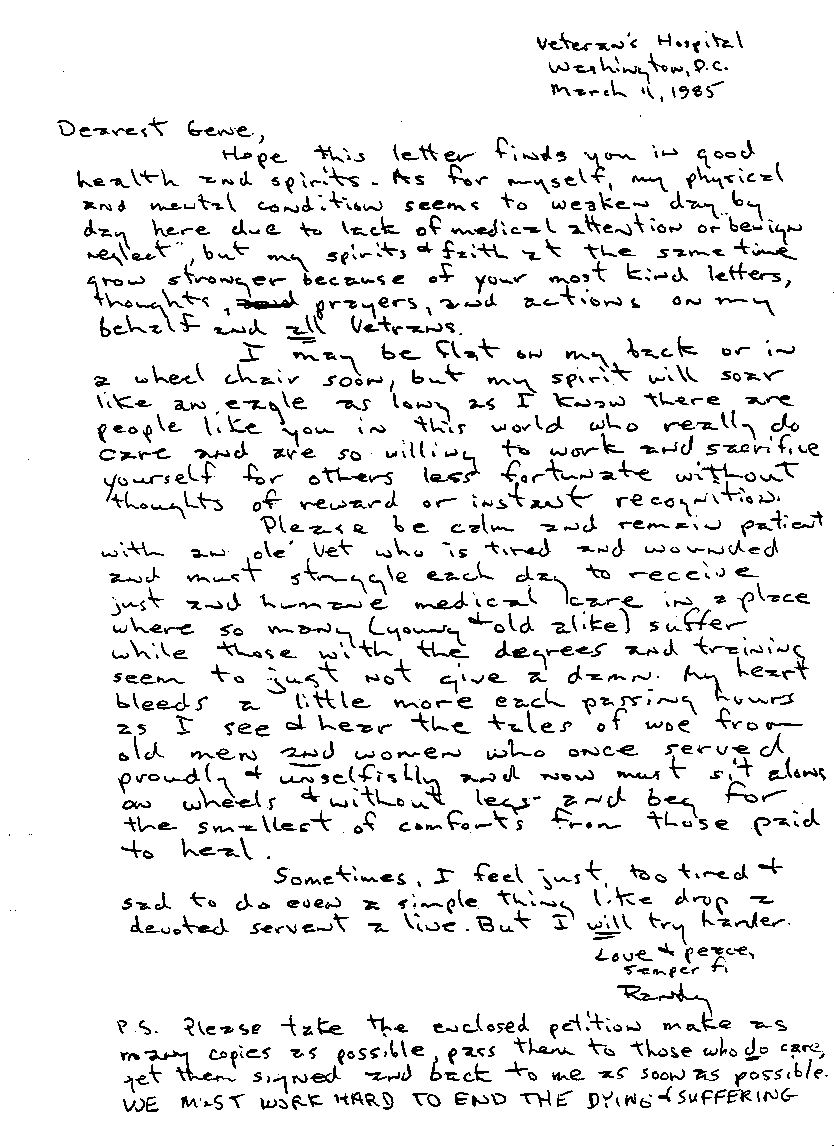 Veteran's Hospital
Washington, D.C.
March 11, 1985
Dearest Gene,
Hope this letter finds you in good
health and spirits. As for myself, my physical
and mental condition seems to weaken day by
day here due to lack of medical attention or benign
neglect", but my spirits & faith at the same time
grow stronger because of your most kind letters,
thoughts, and prayers, and actions on my
behalf and all Vetrans.
I may be flat on my back or in
a wheel chair soon, but my spirit will soar
like an eagle as long as I know there are
people like you in this world who really do
care and are so willing to work and sacrifice
yourself for others less fortunate without
thoughts of reward or instant recognition.
Please be calm and remain patient
with an ole' Vet who is tired and wounded
and must struggle each day to receive
just and humane medical care in a place
where so many (young & old alike) suffer
while those with the degrees and training
seem to just not give a damn. My heart
bleeds a little more each passing hours
as I see & hear the tales of woe from
old men and women who once served
proudly & unselfishly and now must sit alone
on wheels & without legs and beg for
the smallest of comforts from those paid
to heal.
Sometimes, I feel just too tired &
sad to do even a simple thing like drop a
devoted servent a live. But I will try harder.
Love & peace,
Semper fi
Randy
P.S. Please take the enclosed petition make as
many copies as possible, pass them to those who do care,
get them signed and back to me as soon as possible.
WE MUST WORK HARD TO END THE DYING & SUFFERING